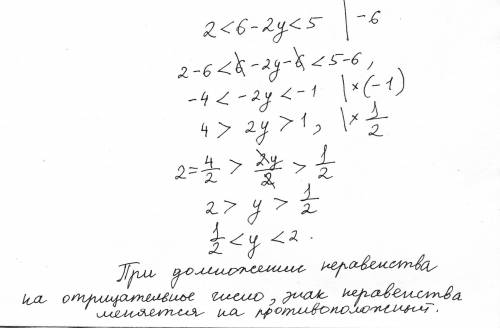 2 < 6 - 2y < 5 | -6
2 - 6 < 6 - 2y - 6 < 5 - 6,
-4 < -2y < -1 | × (-1)
4 > 2y > 1, | × 1/2
2 = 4/2 > 2y/2 > 1/2
2 > y > 1/2
1/2 < y < 2.
При домножение неравенства
на отрицательное число, знак неравенства
меняется на противоположный.